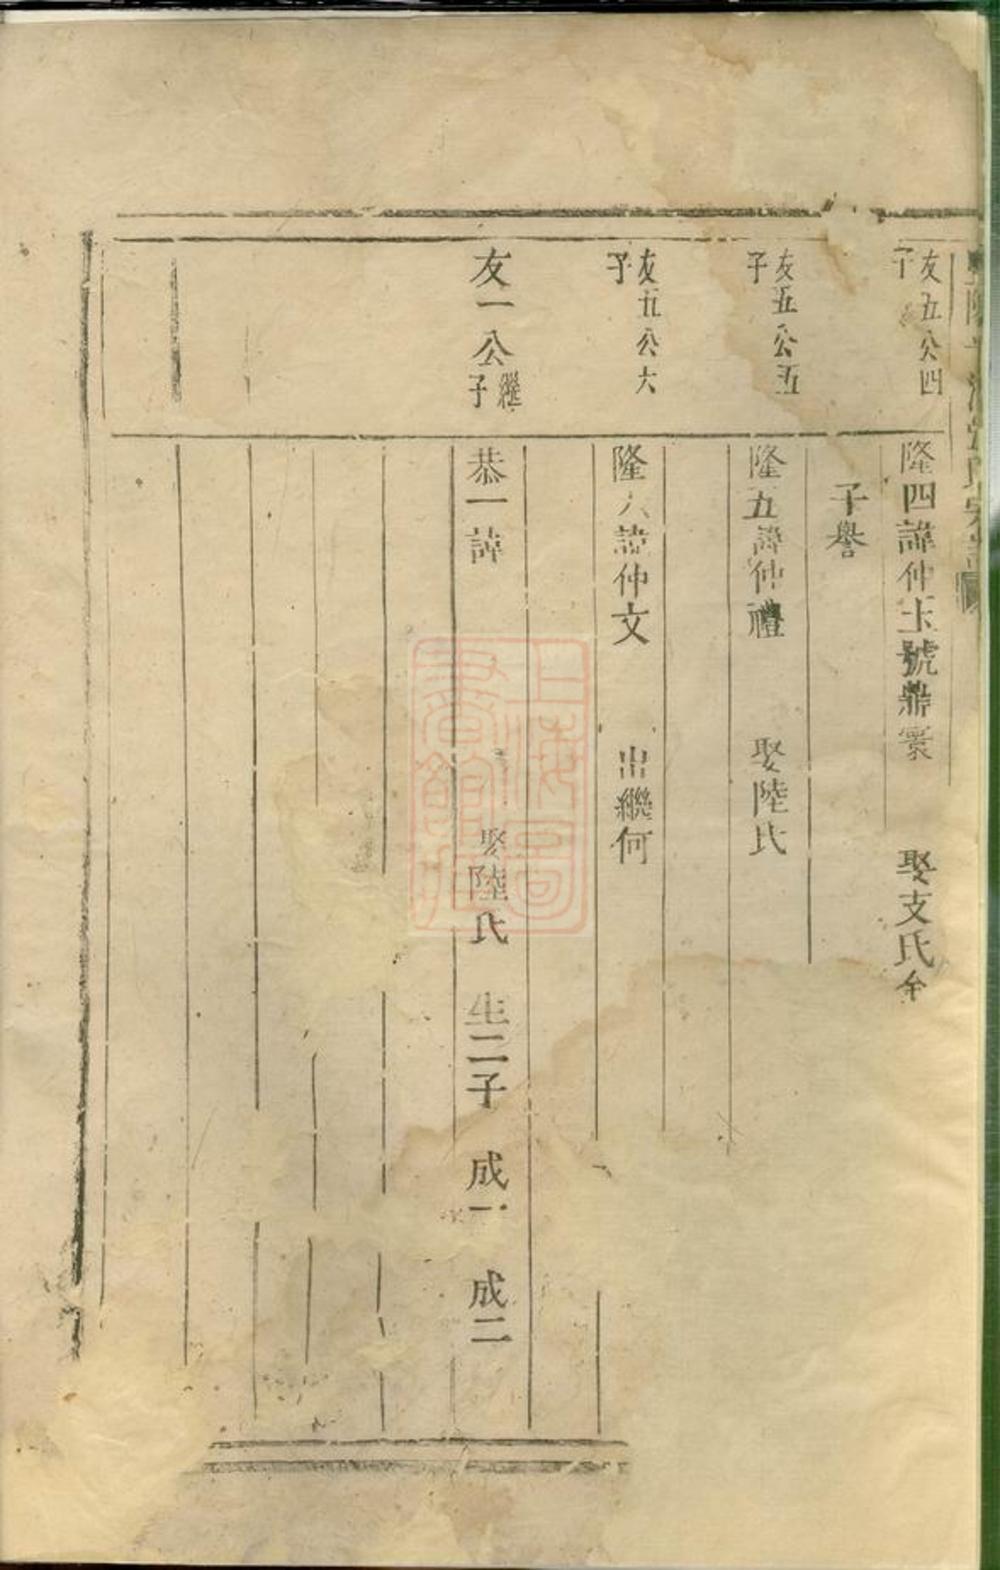 友五公四
子
隆四諱仲玉號鼎寰 娶支氏
子譽
友五公五
子
隆五諱仲禮 娶陸氏
友五公六
子
隆六諱仲文 出繼何
友一公繼
子
恭一諱 娶陸氏 生二子 成一 成二
上海圖
書館藏